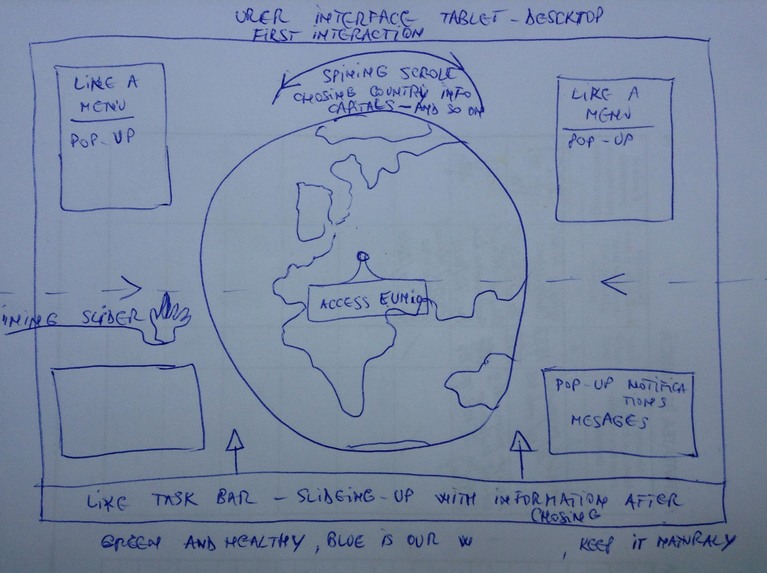 URER INTERFACE TABLET - DESCKTOP
FIRST INTERACTION
SPINING SCROLL
CHOSING COUNTRY INFO
CAPITALS - AND SO ON
LIKE A
MENU
POP-UP
LIKE A
MENU
POP-UP
ACCESS
SLIDER
POP-UP NOTIFICA
TIONS
MESAGES
LIKE TASK BAR - SLIDEING-UP WITH INFORMATION AFTER
CHOSING
GREEN AND HEALTHY, BLUE IS OUR W , KEEP IT NATURALY